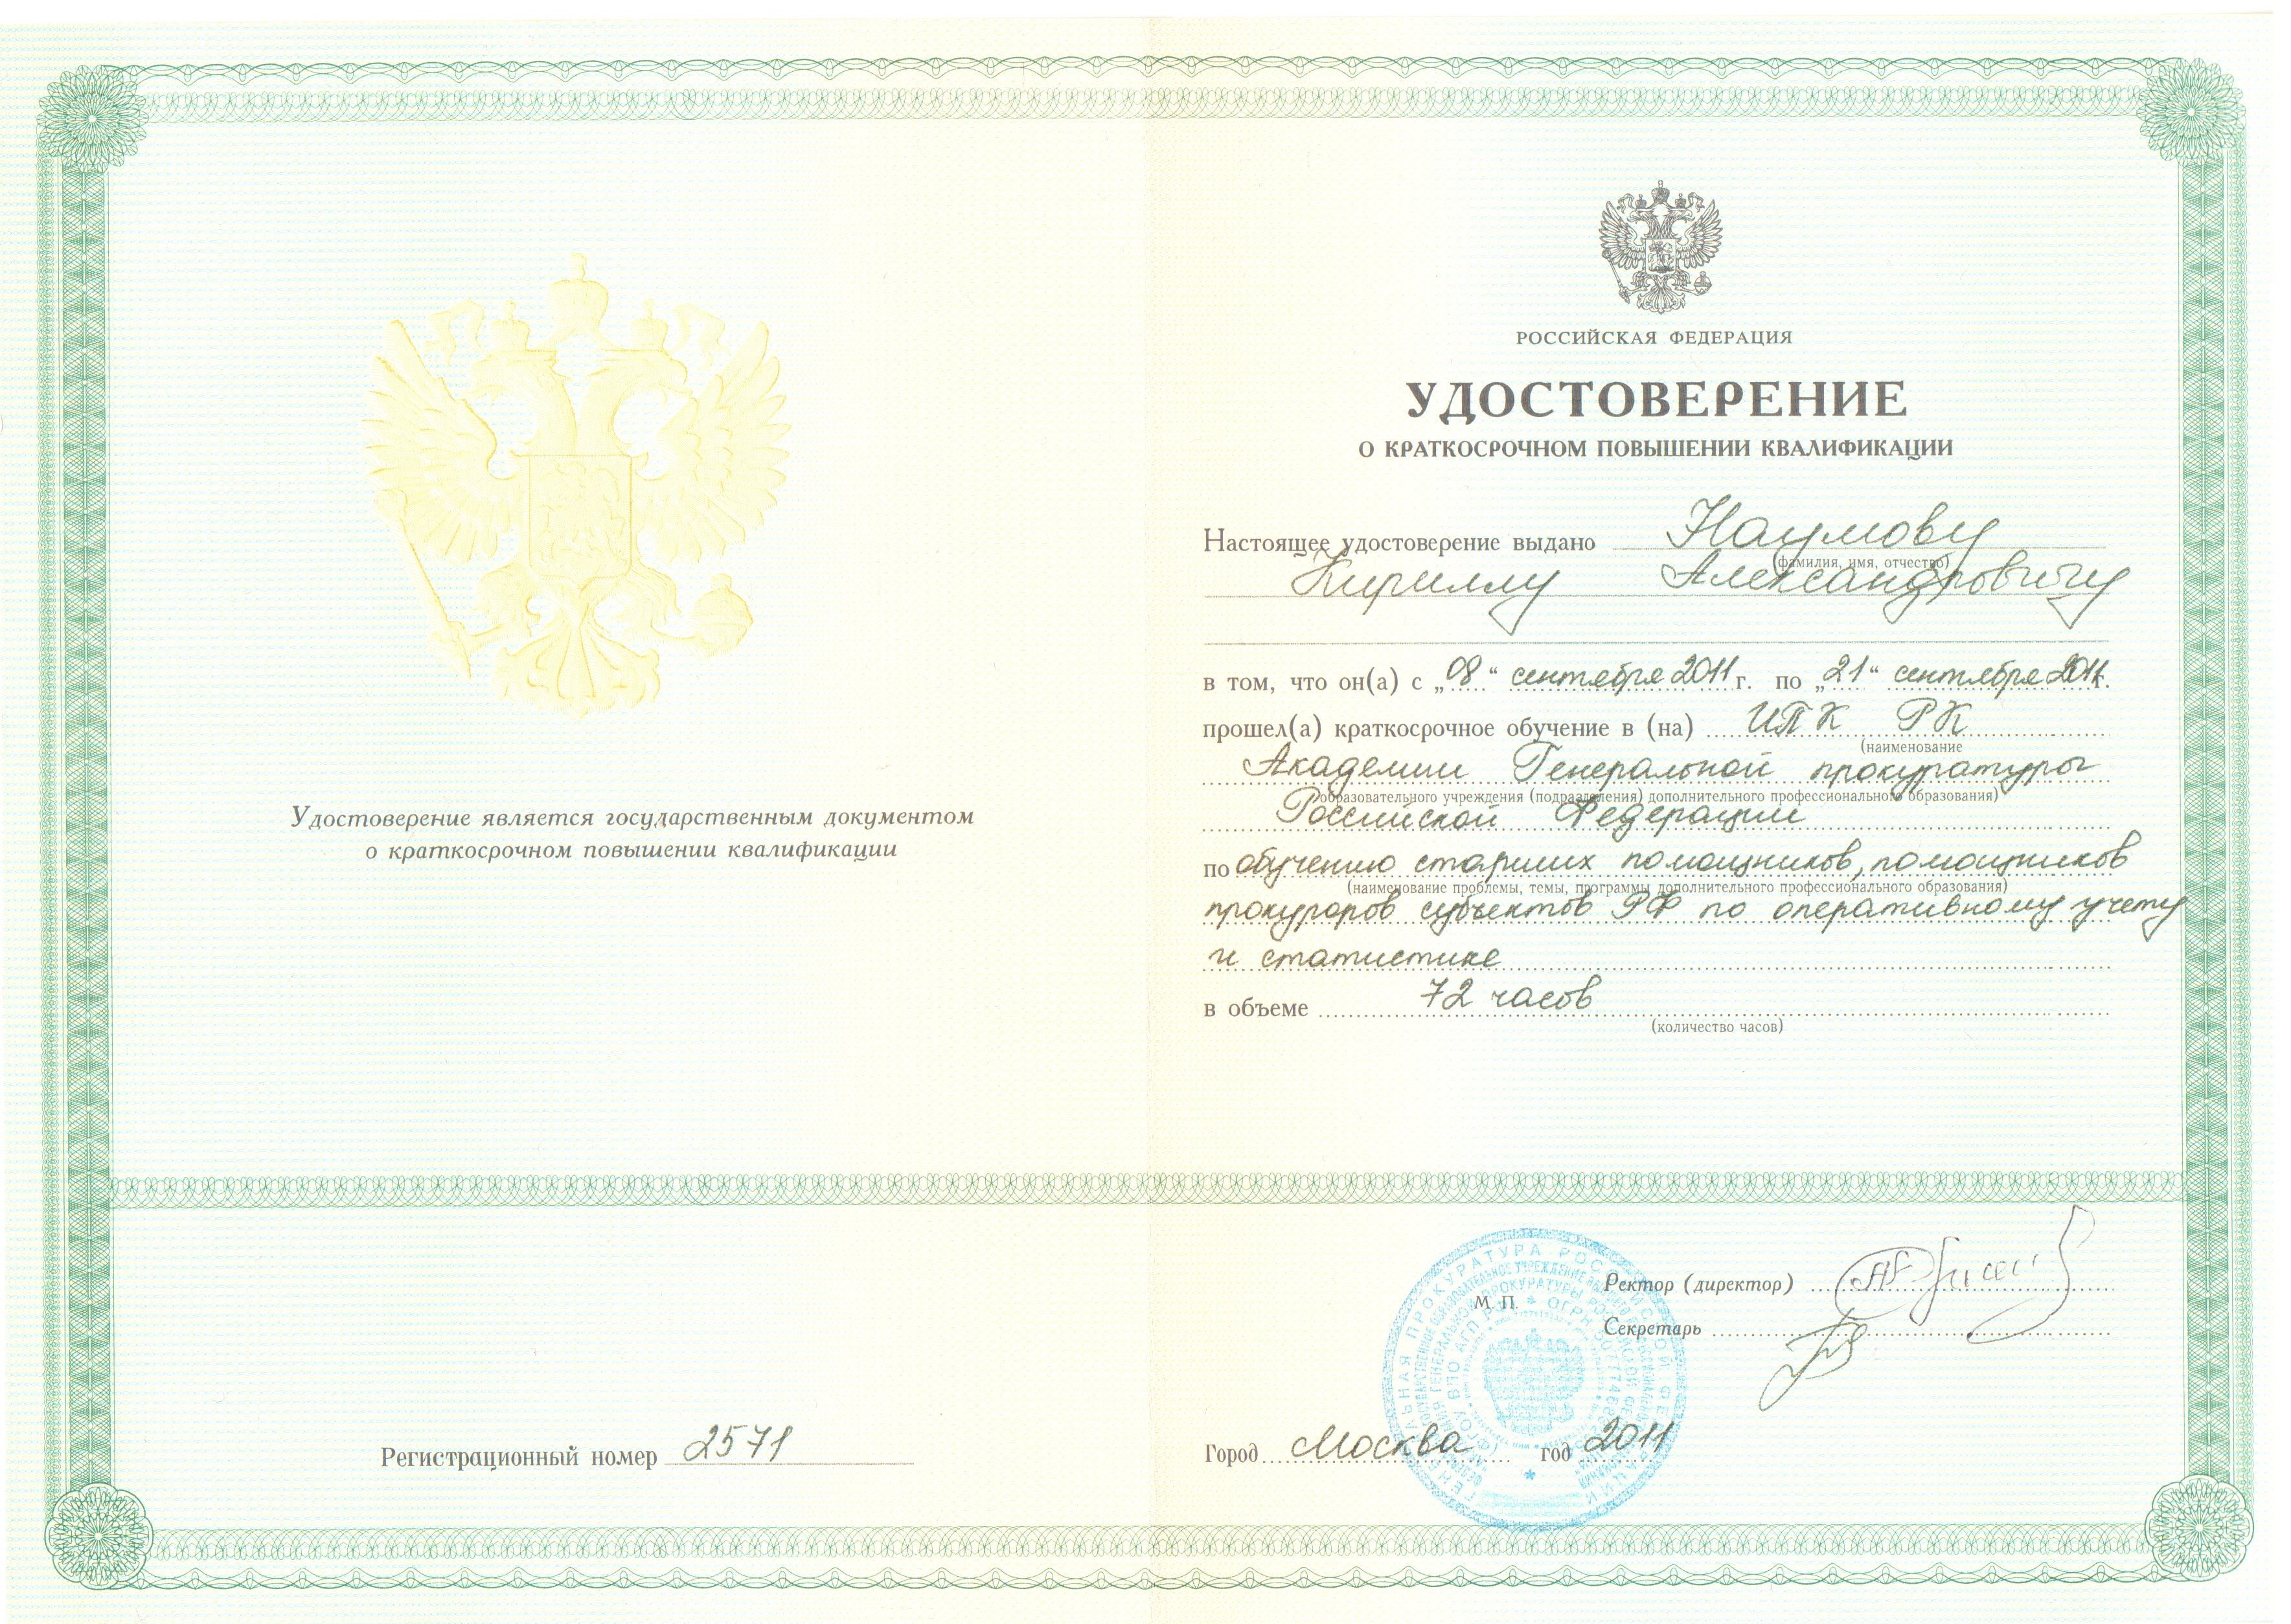 Удостоверение является государственным документом
о краткосрочном повышении квалификации
Регистрационный номер 2571
РОССИЙСКАЯ ФЕДЕРАЦИЯ
УДОСТОВЕРЕНИЕ
О КРАТКОСРОЧНОМ ПОВЫШЕНИИ КВАЛИФИКАЦИИ
Настоящее удостоверение выдано Наумову
(фамилия, имя, отчество)
Кириллу Александровичу
в том, что он(а) с „08“ сентября 2011 г. по „21“ сентября 2011 г.
прошел(а) краткосрочное обучение в (на) ИПК РК
(наименование
Академии Генеральной прокуратуры
образовательного учреждения (подразделения) дополнительного профессионального образования)
Российской Федерации
по обучению старших помощников, помощников
(наименование проблемы, темы, программы дополнительного профессионального образования)
прокуроров субъектов РФ по оперативному учету
и статистике
в объеме 72 часов
(количество часов)
Ректор (директор)
М. П.
Секретарь
Город Москва год 2011
ГЕНЕРАЛЬНАЯ ПРОКУРАТУРА РОССИЙСКОЙ ФЕДЕРАЦИИ